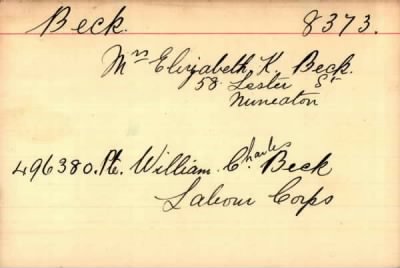 Beck. 8373.
Mrs Elizabeth K. Beck.
58 Lester St
Nuneaton
496380. Pte. William Charles Beck
Labour Corps